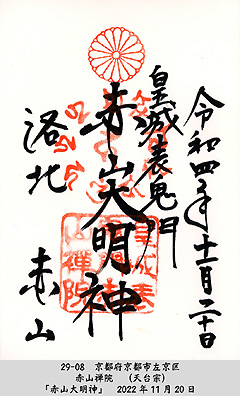 令和四年十一月二十日
皇城表鬼門
赤山大明神
洛北
赤山
29-08 京都府京都市左京区
赤山禅院 (天台宗)
「赤山大明神」 2022年11月20日